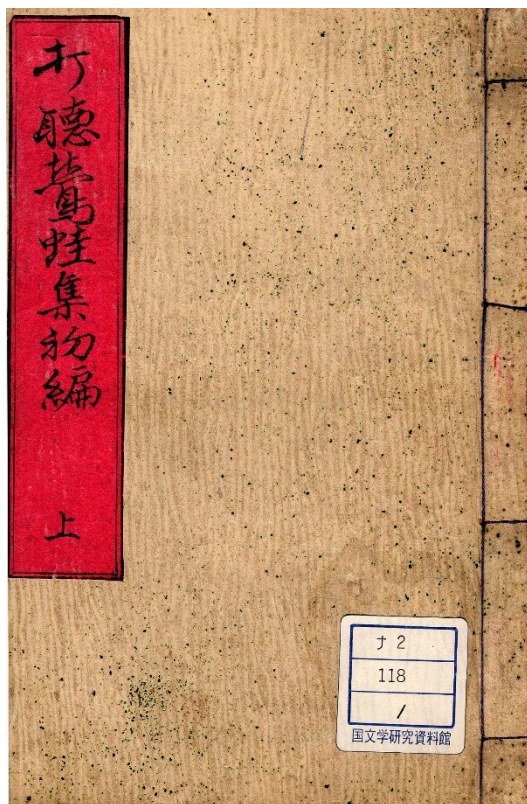 打聴鶯蛙集初編
上
ナ2
118
/
国文学研究資料館